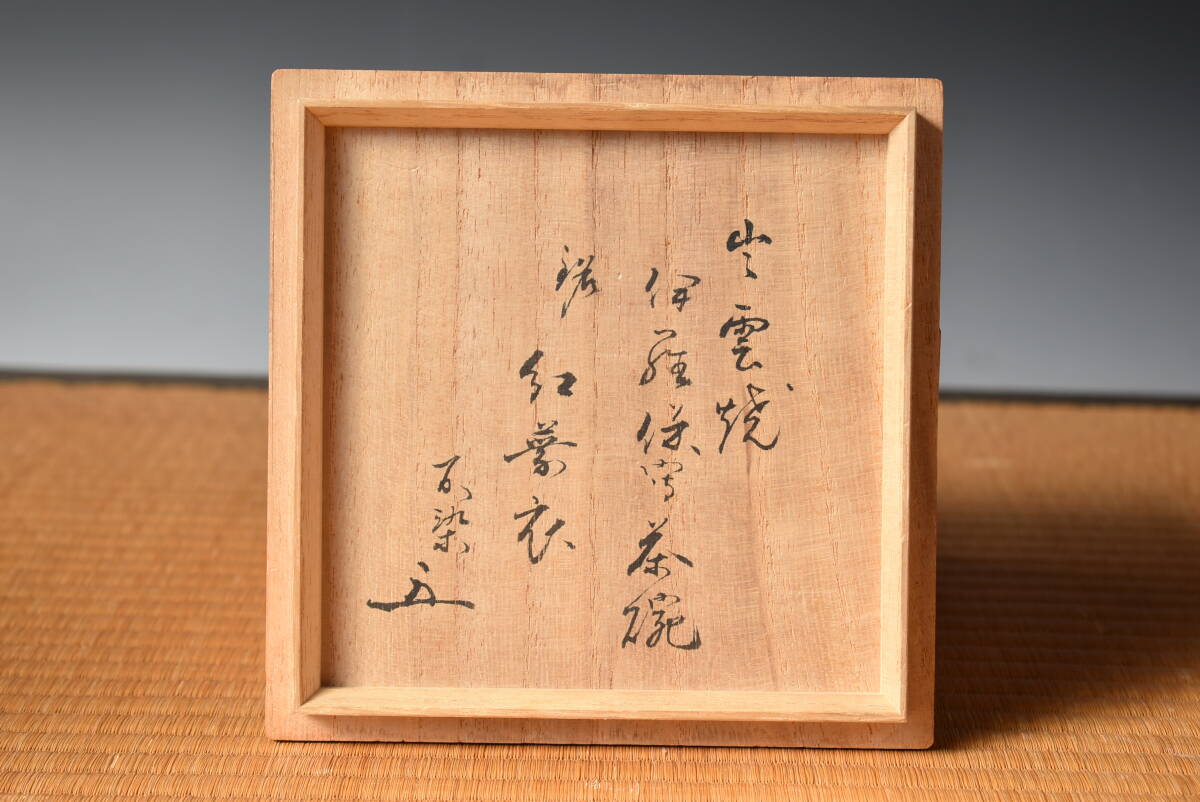 出雲焼
伊羅保写茶碗
銘
紅葉衣
百染 五